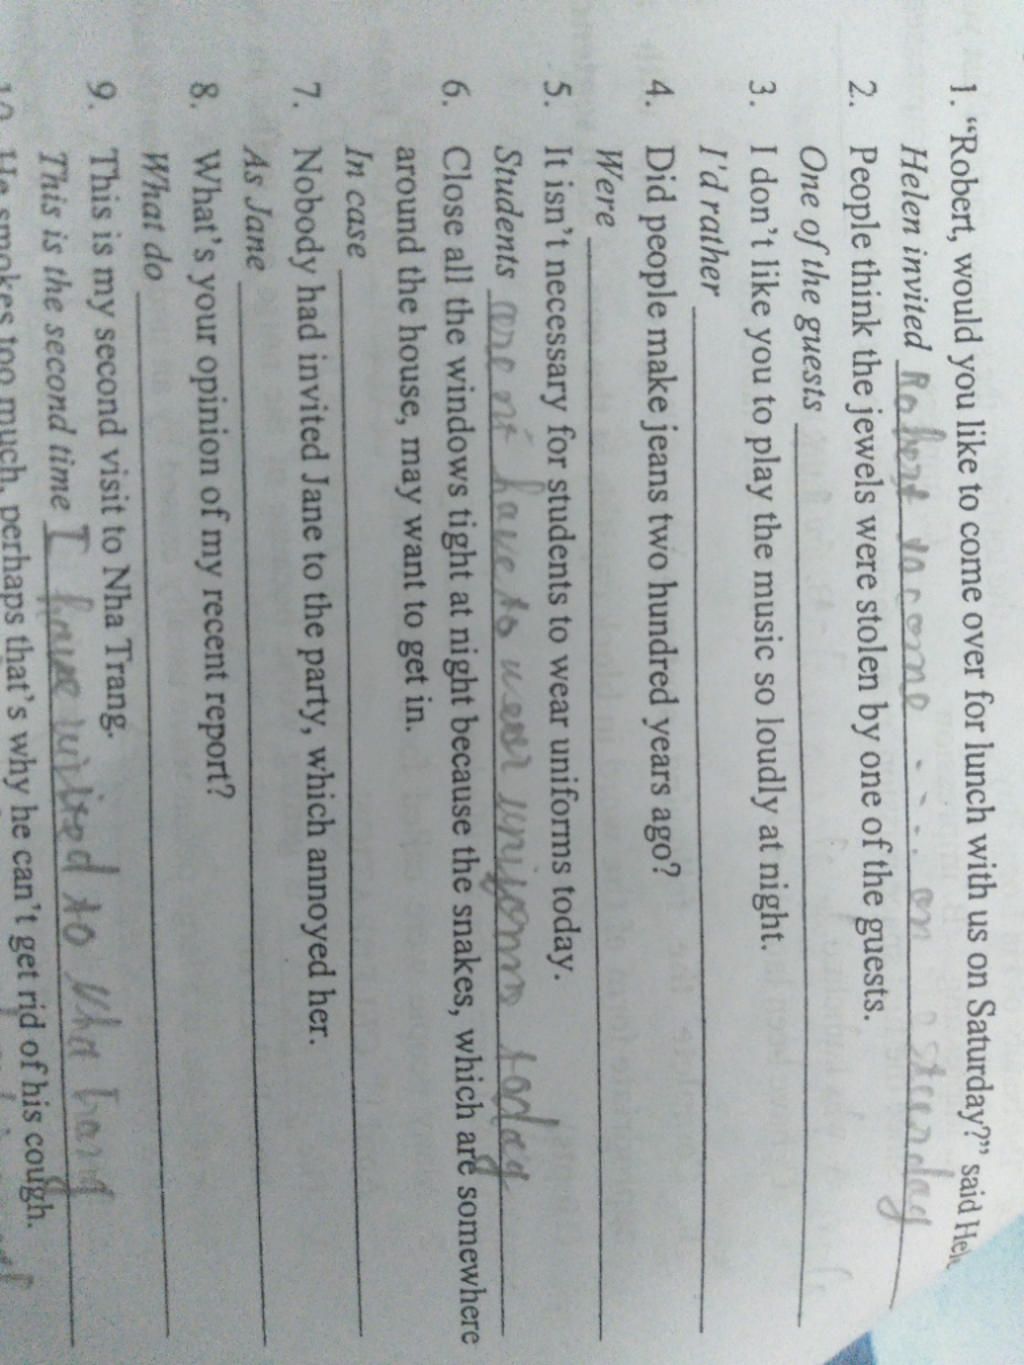 1. “Robert, would you like to come over for lunch with us on Saturday?” said Hel
Helen invited Robert to come . . . . on
2. People think the jewels were stolen by one of the guests.
One of the guests
3. I don’t like you to play the music so loudly at night.
I'd rather
4. Did people make jeans two hundred years ago?
Were
5. It isn’t necessary for students to wear uniforms today.
Students have to wear uniform today
6. Close all the windows tight at night because the snakes, which are somewhere
around the house, may want to get in.
In case
7. Nobody had invited Jane to the party, which annoyed her.
As Jane
8. What’s your opinion of my recent report?
What do
9. This is my second visit to Nha Trang.
This is the second time I have visited to Nha
10. He smokes too much, perhaps that’s why he can’t get rid of his cough.